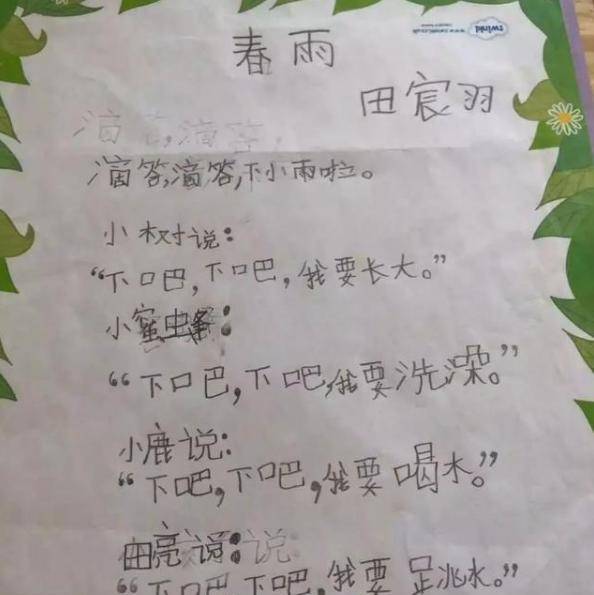 twinkl
春雨
田宸羽
滴答,滴答,
滴答,滴答,下小雨啦。
小树说：
“下吧,下吧,我要长大。”
小蜜蜂：
“下吧,下吧,我要洗澡。”
小鹿说：
“下吧,下吧,我要喝水。”
田亮说：说:
“下吧下吧,我要跳水。”